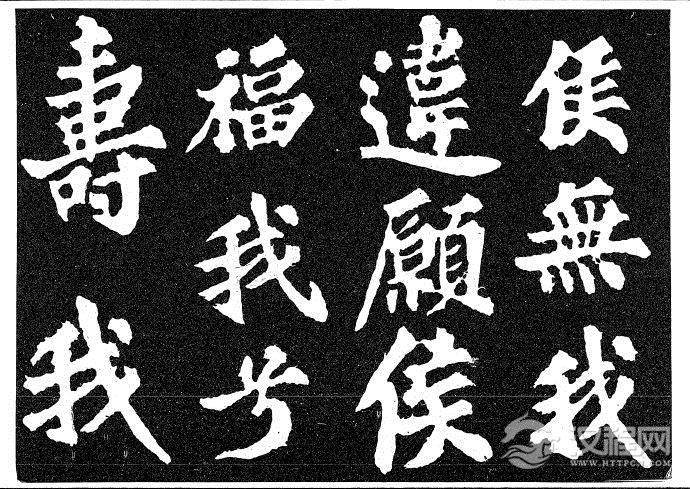 侯無我
違願侯
福我兮
壽我
汉程网
WWW.HTTPCN.COM